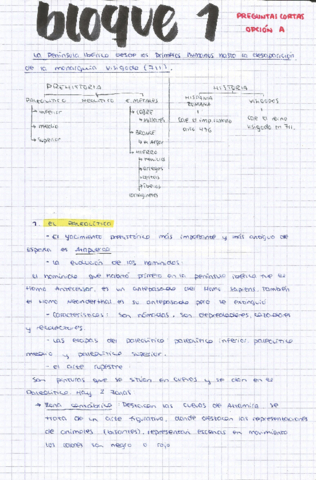 bloque 1
PREGUNTAS CORTAS
OPCIÓN A
LA PENÍNSULA IBÉRICA DESDE LOS PRIMEROS HUMANOS HASTA LA DESAPARICIÓN
DE LA MONARQUÍA VISIGODA (711).
PREHISTORIA
HISTORIA
PALEOLÍTICO NEOLÍTICO E. METALES
HISPANIA ROMANA
VISIGODOS
→ INFERIOR
→ MEDIO
→ Superior
→ COBRE
→ BRONCE
→ HIERRO
1. EL PALEOLÍTICO
- El yacimiento prehistórico más importante y más antiguo de
España es Atapuerca
- La evolución de los homínidos
El homínido que habitó primero en la península ibérica fue el
Homo Antecessor, es un antepasado del Homo Sapiens. También
el Homo Neanderthal es su antepasado pero se extinguió
- Características: Son nómadas. Son depredadores, cazadores
y recolectores.
- Las etapas del paleolítico: paleolítico inferior, paleolítico
medio y paleolítico superior.
- el arte rupestre
Son pinturas que se sitúan en cuevas y se dan en el
paleolítico. Hay 2 zonas
→ Zona cantábrica: Destacan las cuevas de Altamira. Se
trata de un arte figurativo, donde destacan las representaciones
de animales (bisontes), representan escenas en movimiento
los colores son negro o rojo